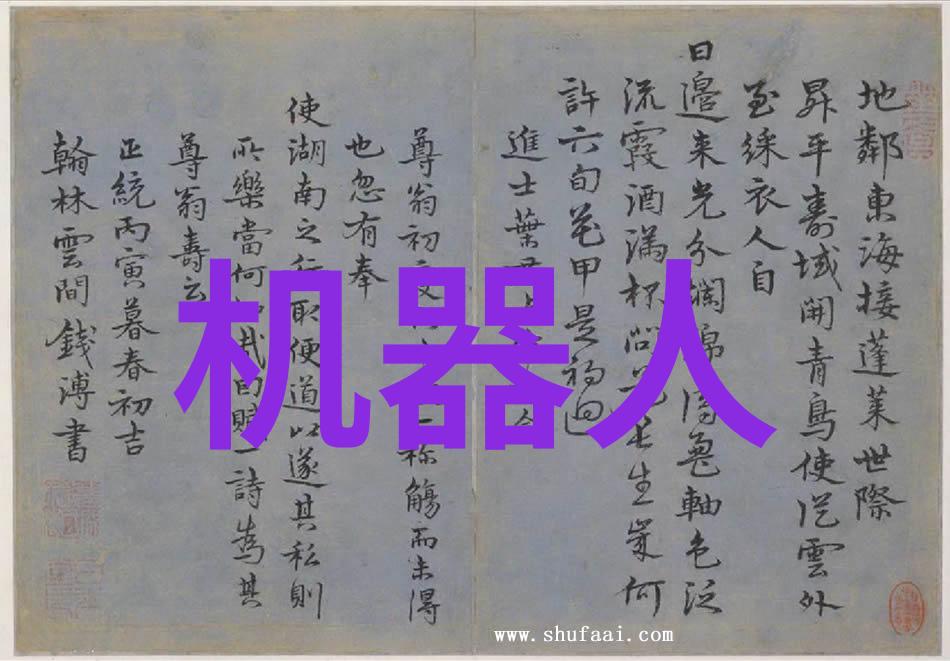 地鄰東海接蓬萊世際
昇平壽域開青鳥使從雲外
至綵衣人自
日邊來光分軸色泛
流霞酒滿杯生何
許六旬花甲是初迴
進士葉
尊翁初稱觴而未得
也忽有奉
使湖南之行取便道以遂其私則
所樂當何哉因賦一詩為其
尊翁壽云
正統丙寅暮春初吉
翰林雲間錢溥書
机器人
www.shufaai.com